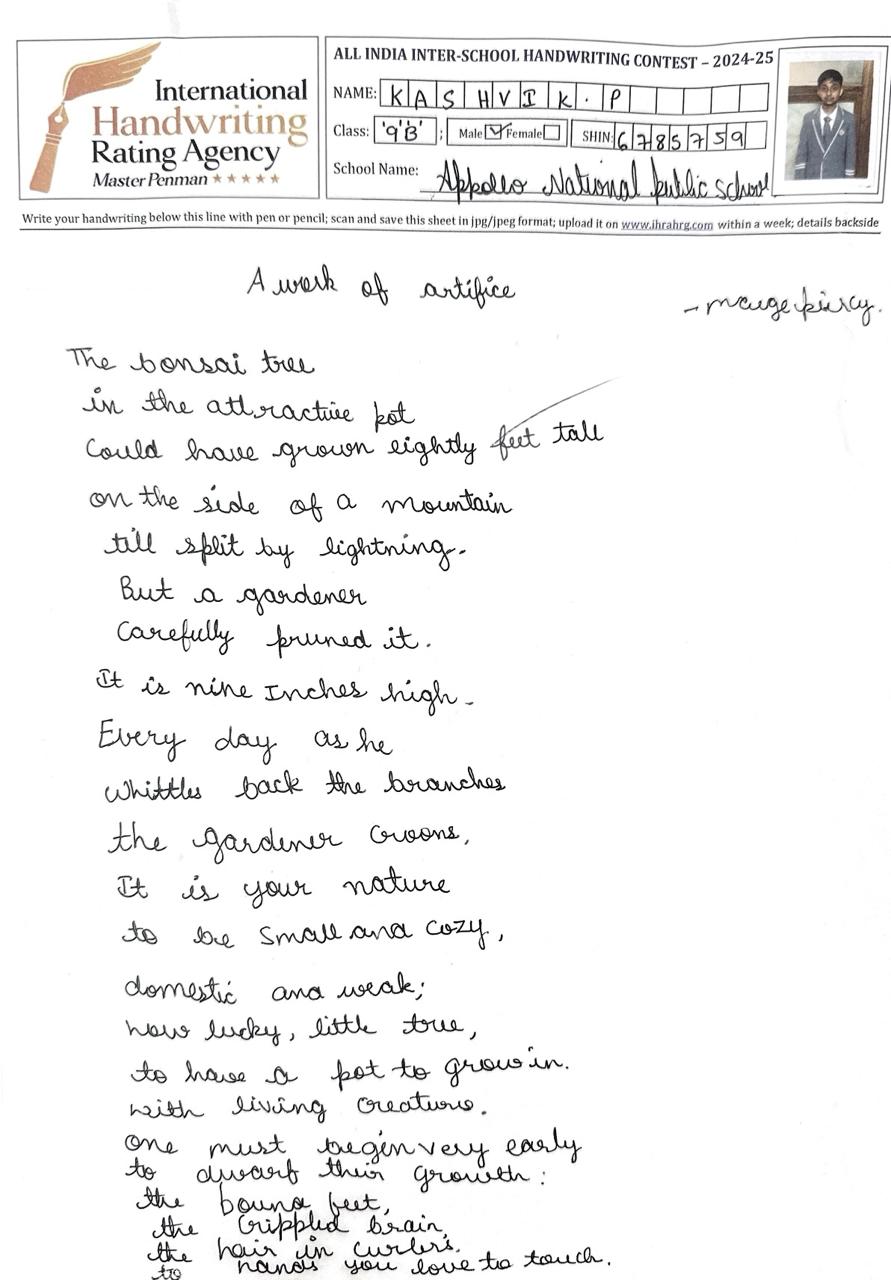 International
Handwriting
Rating Agency
Master Penman ★★★★★
ALL INDIA INTER-SCHOOL HANDWRITING CONTEST – 2024-25
NAME: KASHVIK. P
Class: '9'B' ; Male ☑ Female ☐ SHIN: 6785759
School Name: Appollo National public school
Write your handwriting below this line with pen or pencil; scan and save this sheet in jpg/jpeg format; upload it on www.ihrahrg.com within a week; details backside
A work of artifice
- marge piercy.
The bonsai tree
in the attractive pot
Could have grown eightly feet tall
on the side of a mountain
till split by lightning.
But a gardener
Carefully pruned it.
It is nine Inches high.
Every day as he
Whittles back the branches
the gardener Croons,
It is your nature
to be Small and cozy,
domestic and weak;
how lucky, little tree,
to have a pot to grow in.
with living creature.
one must begin very early
to dwarf their growth:
the bound feet,
the Crippled brain,
the hair in curlers.
to hands you love to touch.